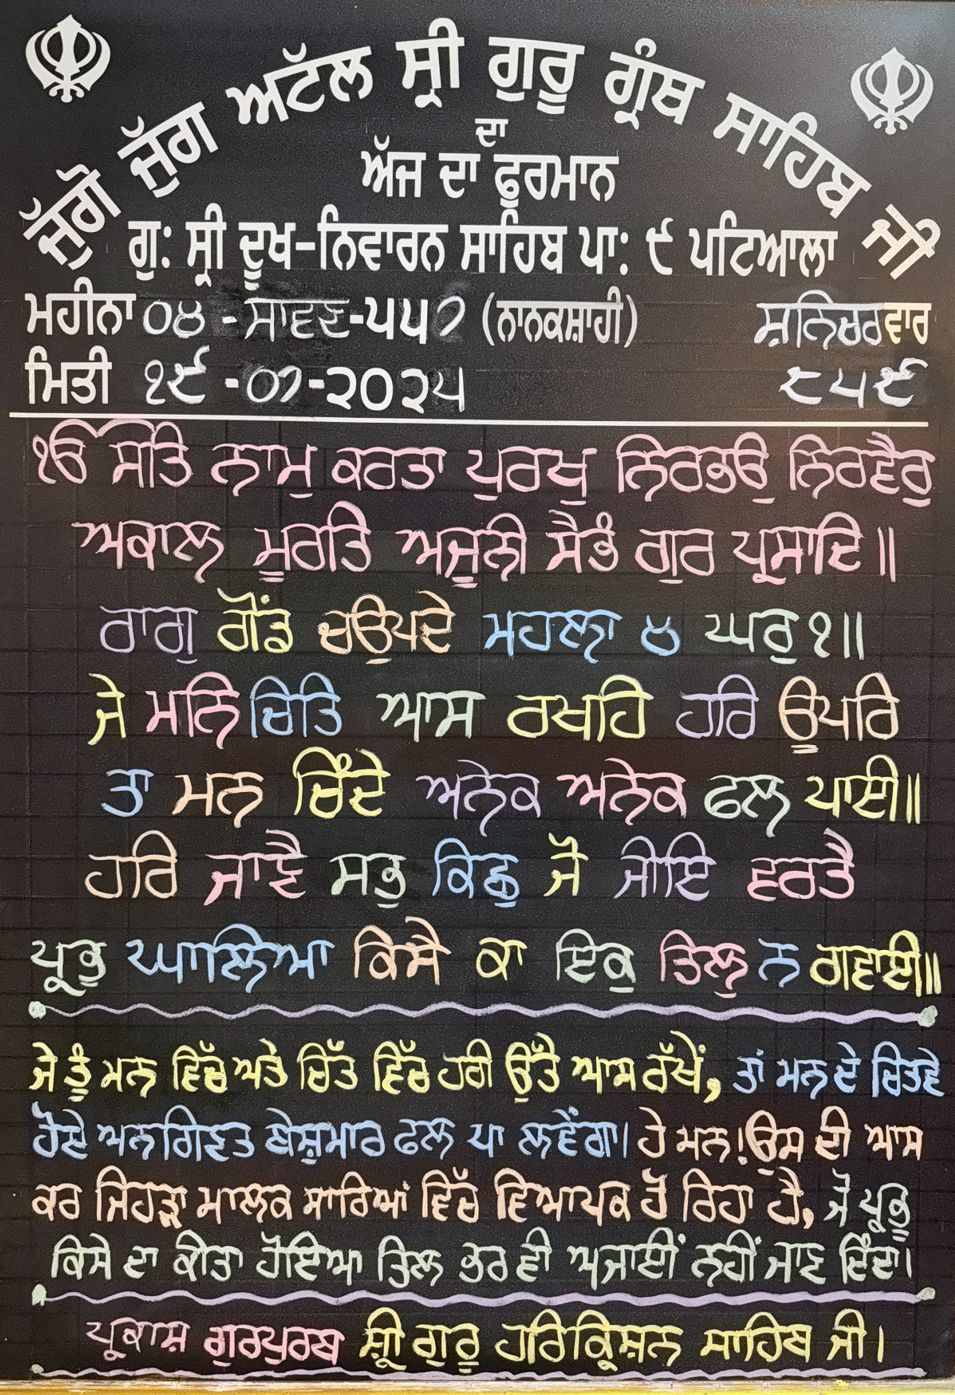 ਜੁੱਗੋ ਜੁੱਗ ਅਟੱਲ ਸ੍ਰੀ ਗੁਰੂ ਗ੍ਰੰਥ ਸਾਹਿਬ ਜੀ
ਦਾ
ਅੱਜ ਦਾ ਫੁਰਮਾਨ
ਗੁ: ਸ੍ਰੀ ਦੂਖ-ਨਿਵਾਰਨ ਸਾਹਿਬ ਪਾ: ੯ ਪਟਿਆਲਾ
ਮਹੀਨਾ ੦੪ - ਸਾਵਣ-੫੫੭ (ਨਾਨਕਸ਼ਾਹੀ) ਸ਼ਨਿਚਰਵਾਰ
ਮਿਤੀ ੧੯ -੦੭-੨੦੨੫ ੮੫੯
ੴ ਸਤਿ ਨਾਮੁ ਕਰਤਾ ਪੁਰਖੁ ਨਿਰਭਉ ਨਿਰਵੈਰੁ
ਅਕਾਲ ਮੂਰਤਿ ਅਜੂਨੀ ਸੈਭੰ ਗੁਰ ਪ੍ਰਸਾਦਿ॥
ਰਾਗੁ ਗੋਂਡ ਚਉਪਦੇ ਮਹਲਾ ੪ ਘਰੁ ੧॥
ਜੇ ਮਨਿ ਚਿਤਿ ਆਸ ਰਖਹਿ ਹਰਿ ਊਪਰਿ
ਤਾ ਮਨ ਚਿੰਦੇ ਅਨੇਕ ਅਨੇਕ ਫਲ ਪਾਈ॥
ਹਰਿ ਜਾਣੈ ਸਭੁ ਕਿਛੁ ਜੋ ਜੀਇ ਵਰਤੈ
ਪ੍ਰਭੁ ਘਾਲਿਆ ਕਿਸੈ ਕਾ ਇਕੁ ਤਿਲੁ ਨ ਗਵਾਈ॥
ਜੇ ਤੂੰ ਮਨ ਵਿੱਚ ਅਤੇ ਚਿੱਤ ਵਿੱਚ ਹਰੀ ਉੱਤੇ ਆਸ ਰੱਖੇਂ, ਤਾਂ ਮਨ ਦੇ ਚਿਤਵੇ
ਹੋਏ ਅਨਗਿਣਤ ਬੇਸ਼ੁਮਾਰ ਫਲ ਪਾ ਲਵੇਂਗਾ। ਹੇ ਮਨ! ਉਸ ਦੀ ਆਸ
ਕਰ ਜਿਹੜਾ ਮਾਲਕ ਸਾਰਿਆਂ ਵਿੱਚ ਵਿਆਪਕ ਹੋ ਰਿਹਾ ਹੈ, ਜੋ ਪ੍ਰਭੂ
ਕਿਸੇ ਦਾ ਕੀਤਾ ਹੋਇਆ ਤਿਲ ਭਰ ਵੀ ਅਜਾਈਂ ਨਹੀਂ ਜਾਣ ਦਿੰਦਾ।
ਪ੍ਰਕਾਸ਼ ਗੁਰਪੁਰਬ ਸ਼੍ਰੀ ਗੁਰੂ ਹਰਿਕ੍ਰਿਸ਼ਨ ਸਾਹਿਬ ਜੀ।